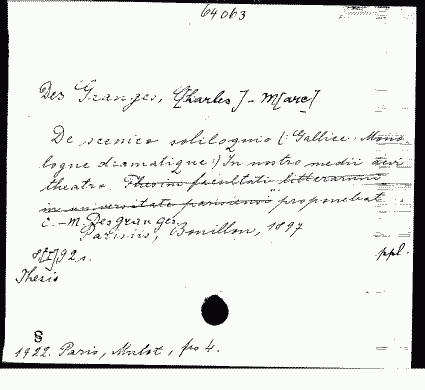 64063
Des Granges, C[harles] - M[arc]
De scenico soliloquio (: Gallice: Mono-
logue dramatique:) In nostro medii aevi
theatro. Thesim facultati litterarum
in universitate parisiensi proponebat
C.-M. Des Granges.
Parisiis, Bouillon, 1897
8[I],92 s.
ppl.
Thesis
§
1922. Paris, Mulot, frs 4.